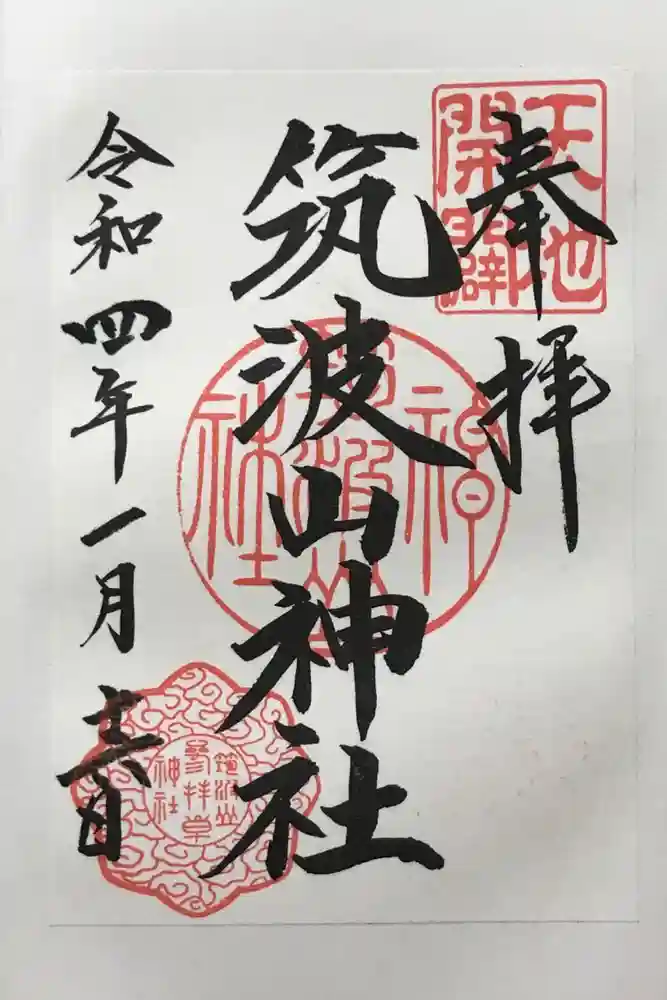 奉拝
天地
開闢
筑波山神社
筑波山
神社
令和四年一月十六日
筑波山
参拝章
神社